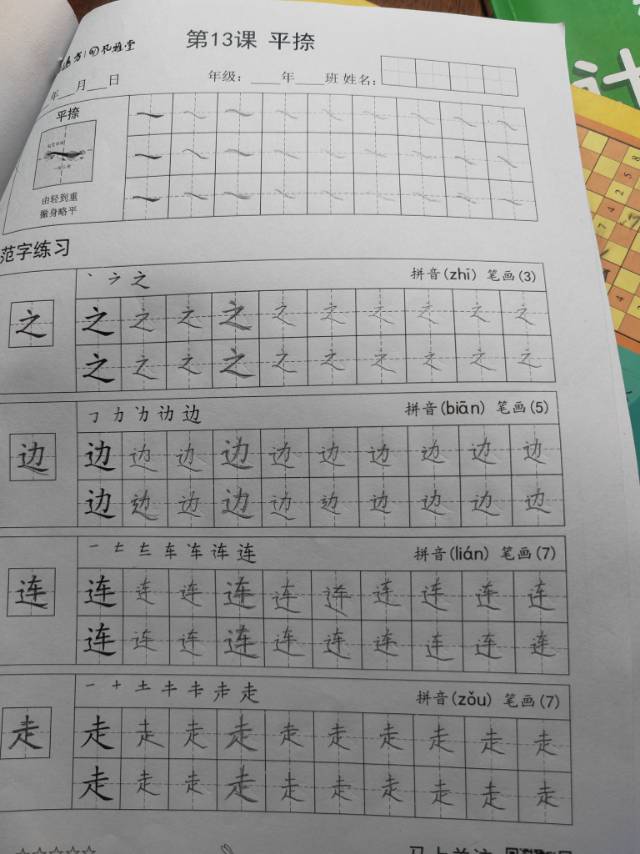 第13课 平捺
年___月___日 年级:___年___班 姓名:
平捺
由轻到重
撇身略平
范字练习
丶 ㇇ 之 拼音(zhī) 笔画(3)
之 之 之 之 之 之 之 之 之 之 之
之 之 之 之 之 之 之 之 之 之
㇆ 力 边 边 边 拼音(biān) 笔画(5)
边 边 边 边 边 边 边 边 边 边 边
边 边 边 边 边 边 边 边 边 边
一 车 连 拼音(lián) 笔画(7)
连 连 连 连 连 连 连 连 连 连 连
连 连 连 连 连 连 连 连 连 连
一 十 土 走 拼音(zǒu) 笔画(7)
走 走 走 走 走 走 走 走 走 走 走
走 走 走 走 走 走 走 走 走 走
☆☆☆☆☆ 马上关注